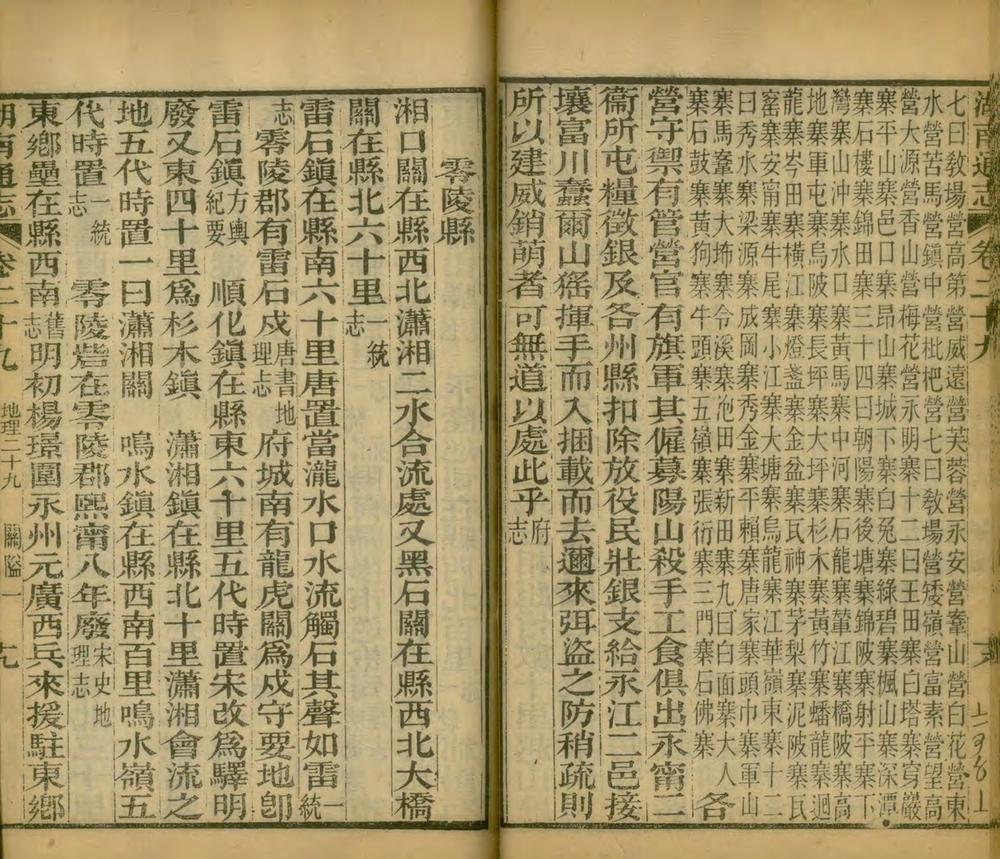 湖南通志 卷二十九
七曰教場營高第營威遠營芙蓉營永安營鞏山營白花營東
水營苦馬營鎮中營枇杷營七曰教場營矮嶺營富素營望高
營大源營香山營梅花營永明寨十二曰王田寨白塔寨穿巖
寨平山寨邑口寨昂山寨城下寨白兔寨綠碧寨楓山寨深潭
寨石樓寨錦田寨三十四曰朝陽寨後塘寨錦陂寨射平寨下
灣寨山沖寨水口寨黃馬寨中河寨石龍寨葦江寨橋陂寨高
地寨軍屯寨烏陂寨長坪寨大坪寨杉木寨黃竹寨蟠龍寨迥
龍寨岑田寨橫江寨燈盞寨金盆寨瓦神寨茅梨寨泥陂寨瓦
窰寨安甯寨牛尾寨小江寨大塘寨烏龍寨江華嶺東寨十二
曰秀水寨梁源寨成岡寨秀金寨平賴寨唐家寨頭巾寨軍山
寨馬鞏寨大坳寨令溪寨池田寨新田寨九曰白面寨大人
寨石鼓寨黃狗寨牛頭寨五嶺寨張衍寨三門寨石佛寨 各
營守禦有管營官有旗軍其僱募陽山殺手工食俱出永甯二
衞所屯糧徵銀及各州縣扣除放役民壯銀支給永江二邑接
壤富川蠢爾山猺揮手而入捆載而去邇來弭盜之防稍疏則
所以建威銷萌者可無道以處此乎府志
零陵縣
湘口關在縣西北瀟湘二水合流處又黑石關在縣西北大橋
關在縣北六十里一統志
雷石鎮在縣南六十里唐置當瀧水口水流觸石其聲如雷一統
志 零陵郡有雷石戍唐書地理志 府城南有龍虎關為戍守要地卽
雷石鎮方輿紀要 順化鎮在縣東六十里五代時置宋改為驛明
廢又東四十里為杉木鎮 瀟湘鎮在縣北十里瀟湘會流之
地五代時置一曰瀟湘關 鳴水鎮在縣西南百里鳴水嶺五
代時置一統志 零陵砦在零陵郡熙甯八年廢宋史地理志
東鄉壘在縣西南舊志明初楊璟圍永州元廣西兵來援駐東鄉
湖南通志 卷二十九 地理二十九 關隘一 十九